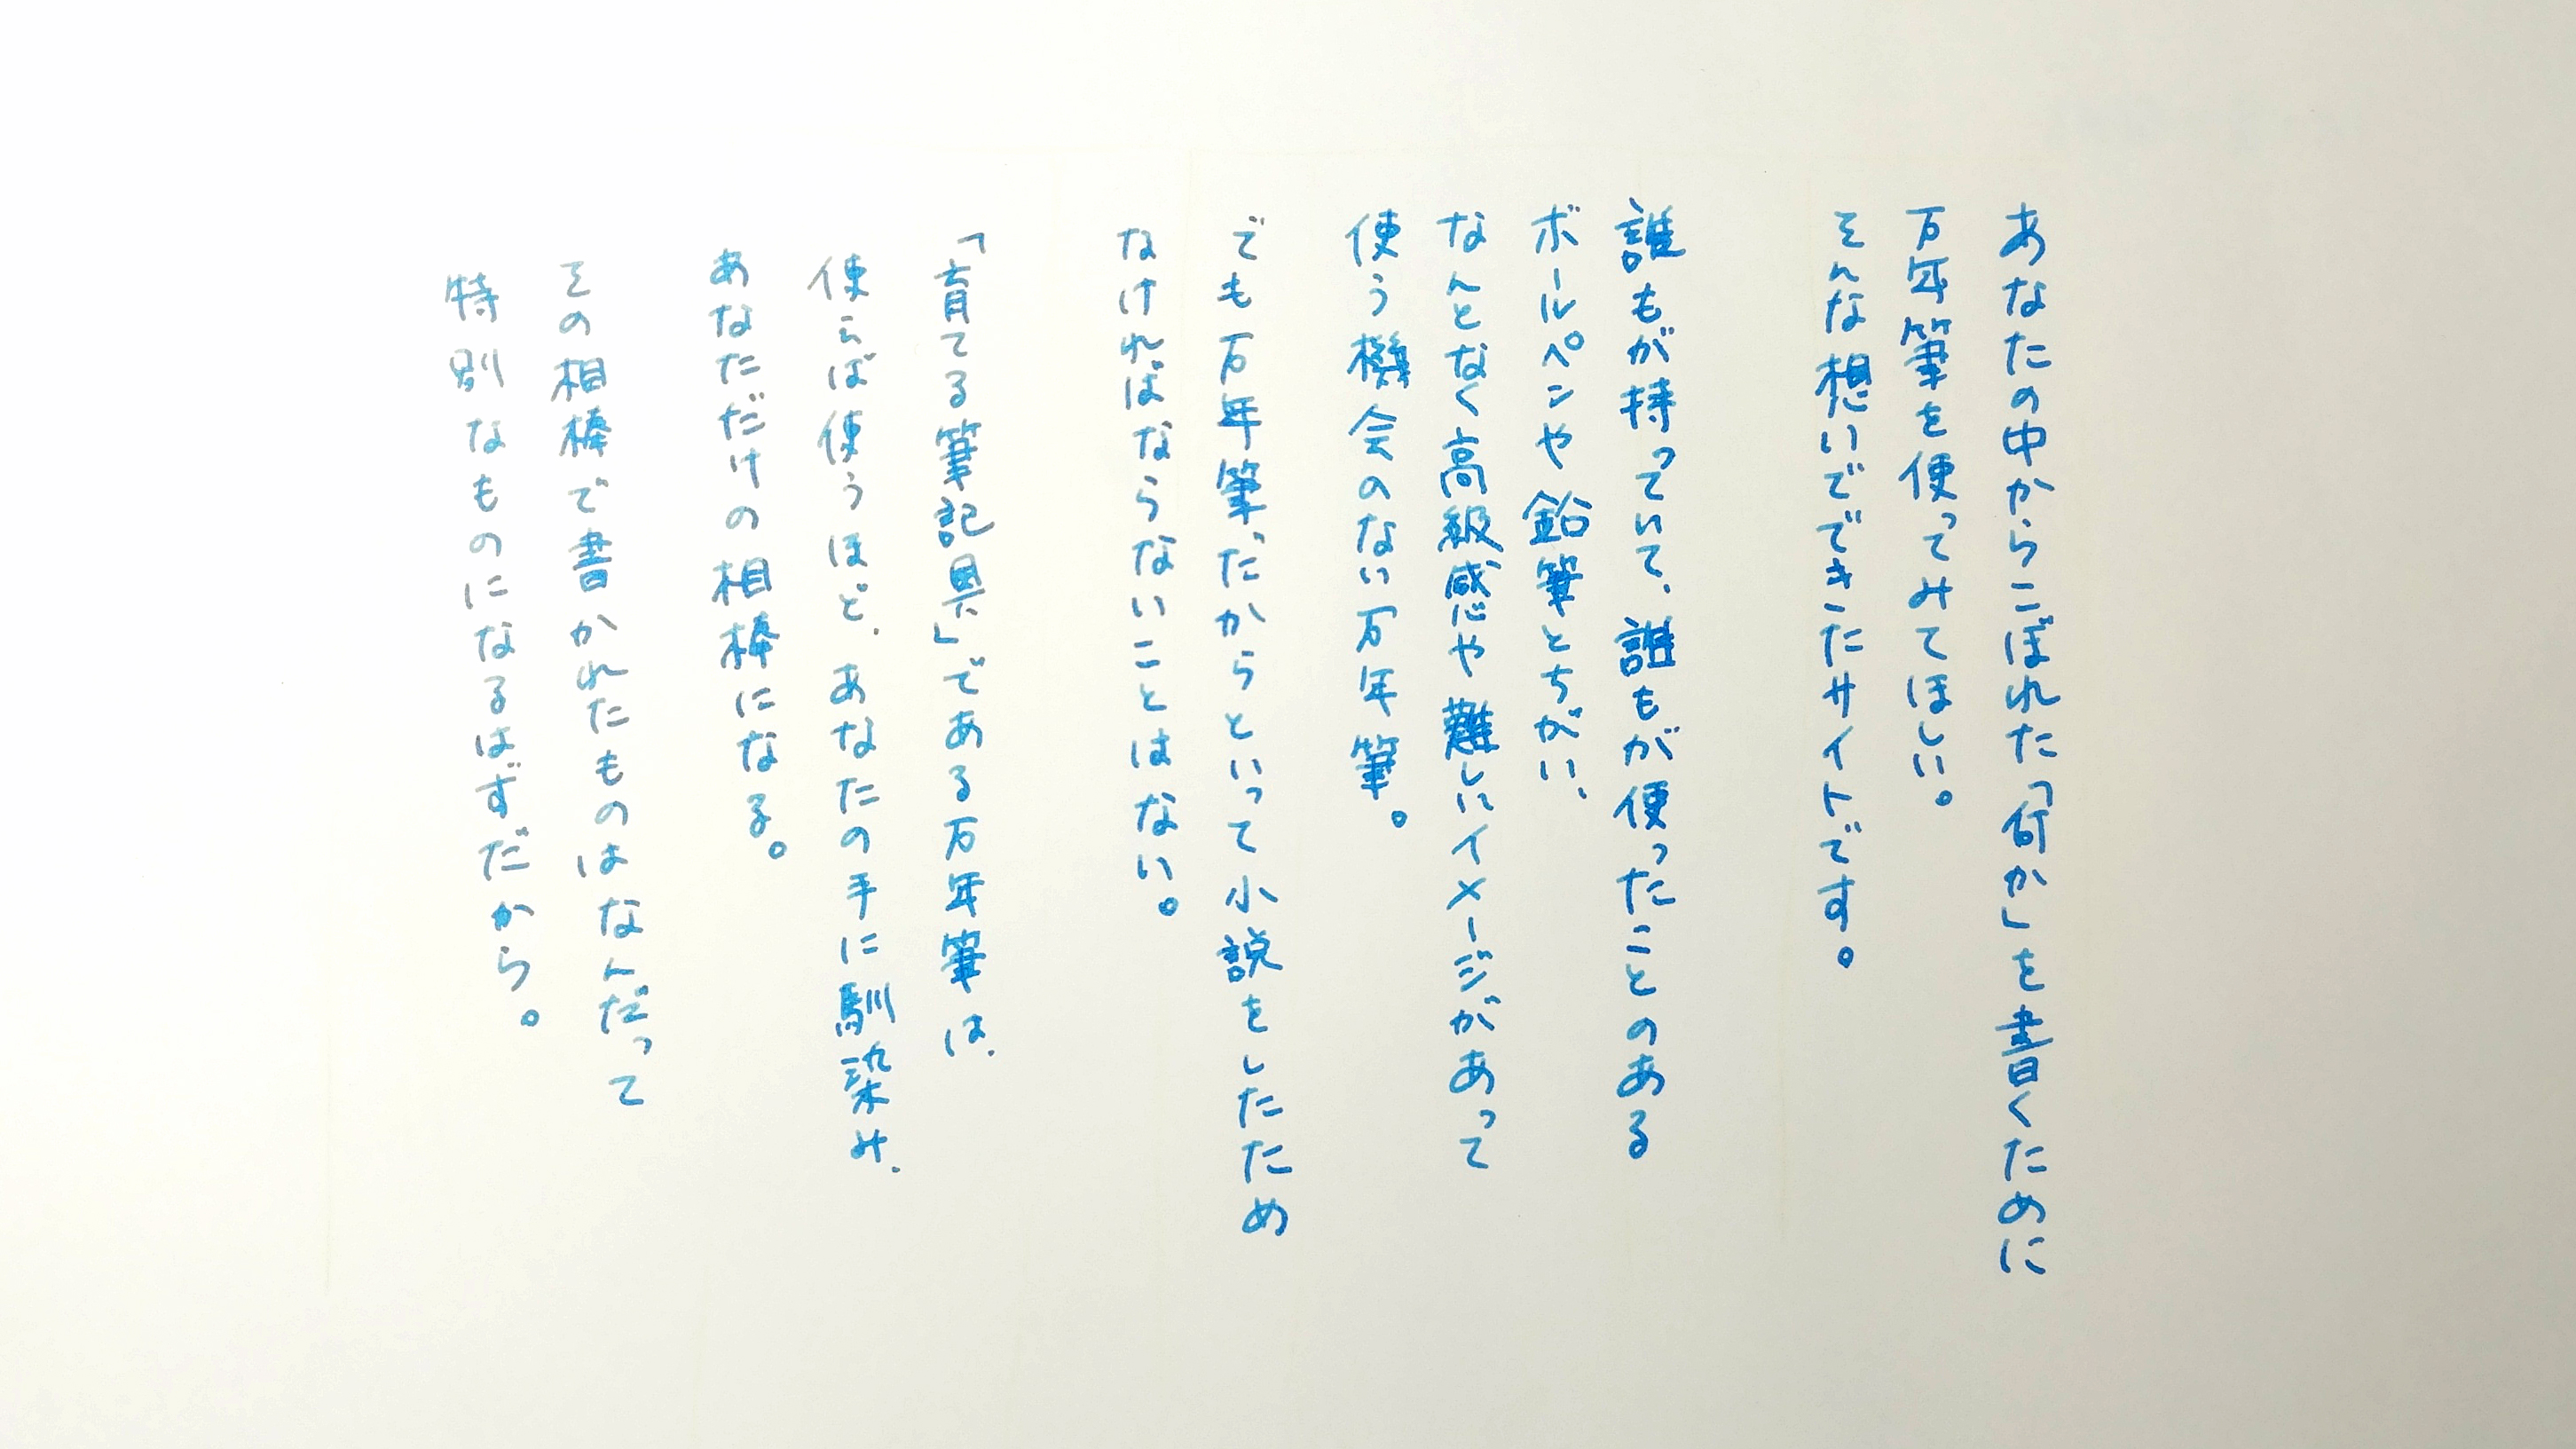 あなたの中からこぼれた「何か」を書くために
万年筆を使ってみてほしい。
そんな想いでできたサイトです。
誰もが持っていて、誰もが使ったことのある
ボールペンや鉛筆とちがい、
なんとなく高級感や難しいイメージがあって
使う機会のない万年筆。
でも万年筆だからといって小説をしたため
なければならないことはない。
「育てる筆記具」である万年筆は、
使えば使うほど、あなたの手に馴染み、
あなただけの相棒になる。
その相棒で書かれたものはなんだって
特別なものになるはずだから。